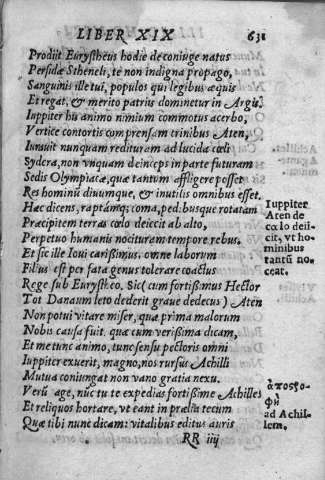 LIBER XIX
631
Prodijt Eurystheus hodie de coniuge natus
Persidæ Stheneli, te non indigna propago,
Sanguinis ille tui, populos qui legibus æquis
Et regat, & merito patrius dominetur in Argis.
Iuppiter his animo nimium commotus acerbo,
Vertice contortis comprensam crinibus Aten,
Iurauit nunquam redituram ad lucida cœli
Sydera, non vnquam deinceps in parte futuram
Sedis Olympiacæ, quæ tantum affligere posset
Res hominū diuumque, & inutilis omnibus esset.
Hæc dicens, raptámque coma, pedibusque rotatam
Præcipitem terras cœlo deiecit ab alto,
Perpetuo humanis nocituram tempore rebus.
Et sic ille Ioui carissimus, omne laborum
Filius est per fata genus tolerare coactus
Rege sub Eurystheo. Sic (cum fortissimus Hector
Tot Danaum leto dederit graue dedecus) Aten
Non potui vitare miser, quæ prima malorum
Nobis causa fuit. quæ cum verissima dicam,
Et me tunc animo, tunc sensu pectoris omni
Iuppiter exuerit, magno, nos rursus Achilli
Mutua coniungat non vano gratia nexu.
Verū age, nūc tu te expedias fortissime Achilles
Et reliquos hortare, vt eant in prælia tecum
Quæ tibi nunc dicam: vitalibus editus auris
RR iiij
Iuppiter
Aten de
cœlo deii-
cit, vt ho-
minibus
tantū no-
ceat.
ἀποστρο-
φὴ
ad Achil-
lem.